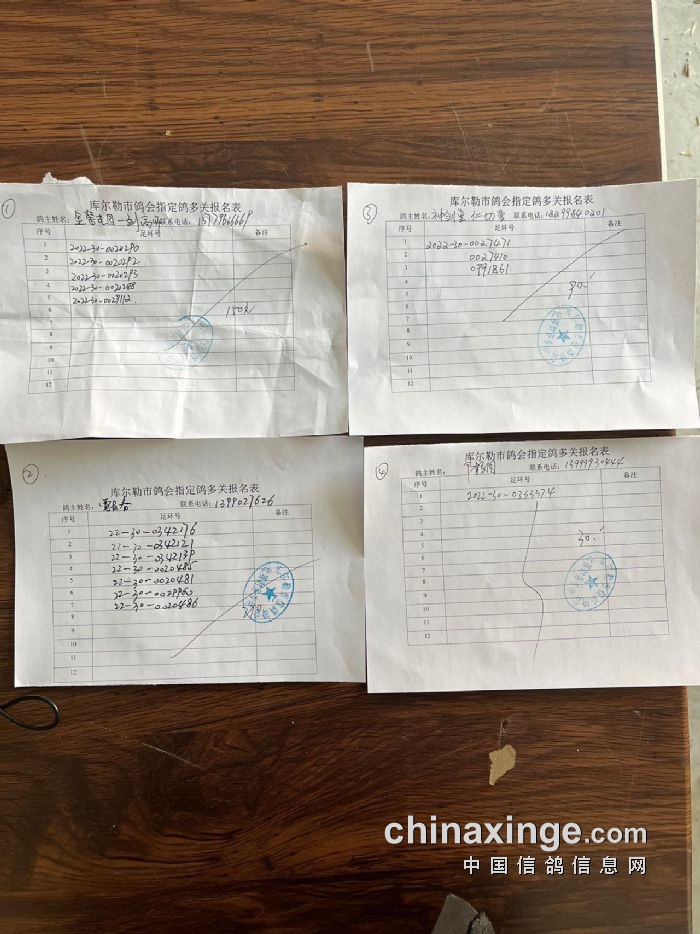 ①
库尔勒市鸽会指定鸽多关报名表
鸽主姓名: 联系电话:
序号 足环号 备注
1 2022-30-0020290
2 2022-30-0020292
3 2022-30-0020293
4 2022-30-0020288
5 2022-30-0029112
6 150元
7
8
9
10
11
12
③
库尔勒市鸽会指定鸽多关报名表
鸽主姓名: 联系电话:
序号 足环号 备注
1 2022-30-0027471
2 0027410
3 0991851
4
5 90.
6
7
8
9
10
11
12
②
库尔勒市鸽会指定鸽多关报名表
鸽主姓名: 联系电话: 1399027626
序号 足环号 备注
1 22-30-0342176
2 22-30-0342121
3 22-30-0342139
4 22-30-0020485
5 22-30-0020481
6 22-30-0029960
7 22-30-0020486
8
9
10
11
12
④
库尔勒市鸽会指定鸽多关报名表
鸽主姓名: 联系电话: 13999930444
序号 足环号 备注
1 2022-30-0353374
2
3
4 30.
5
6
7
8
9
10
11
12
chinaxinge.com
中国信鸽信息网